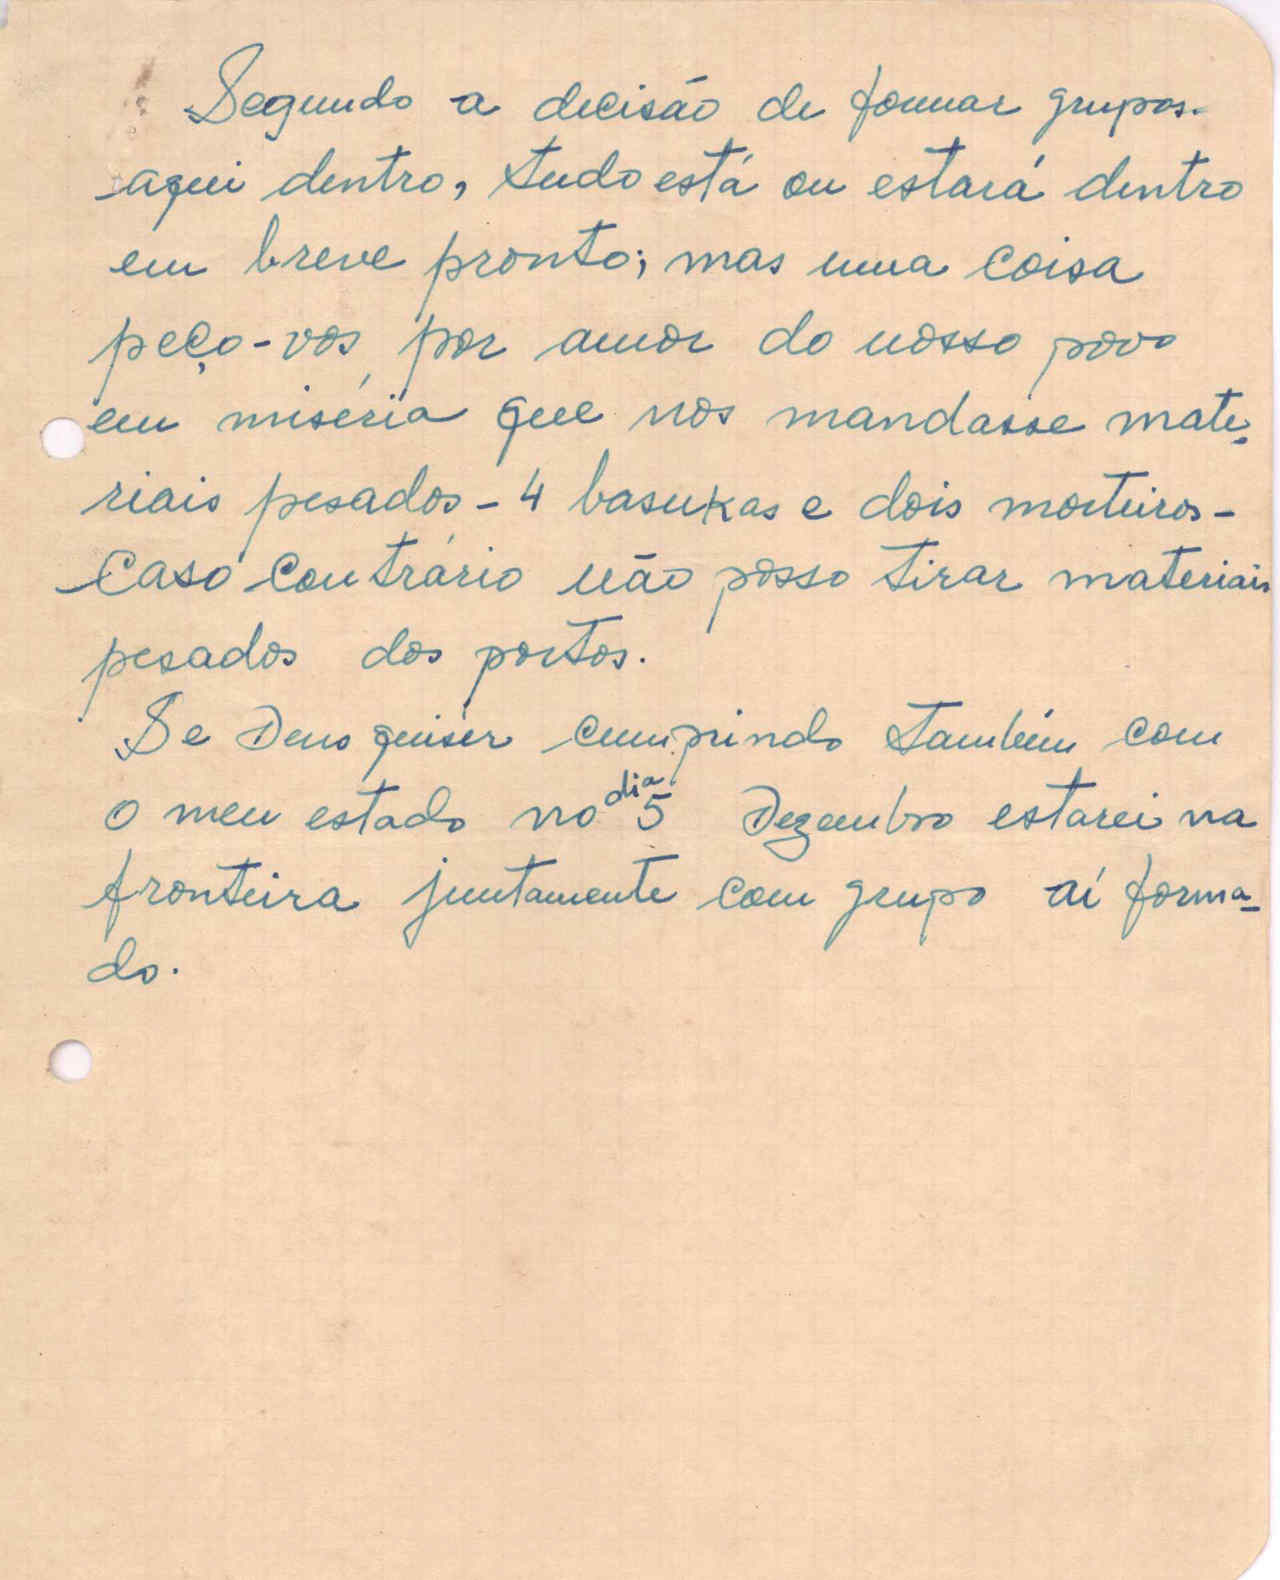 Segundo a decisão de formar grupos
aqui dentro, tudo está ou estará dentro
em breve pronto; mas uma coisa
peço-vos por amor do nosso povo
em miséria que nos mandasse mate-
riais pesados - 4 basukas e dois morteiros -
Caso contrário não posso tirar materiais
pesados dos portos.
Se Deus quisér cumprindo também com
o meu estado no dia 5 Dezembro estarei na
fronteira juntamente com grupo aí forma-
do.